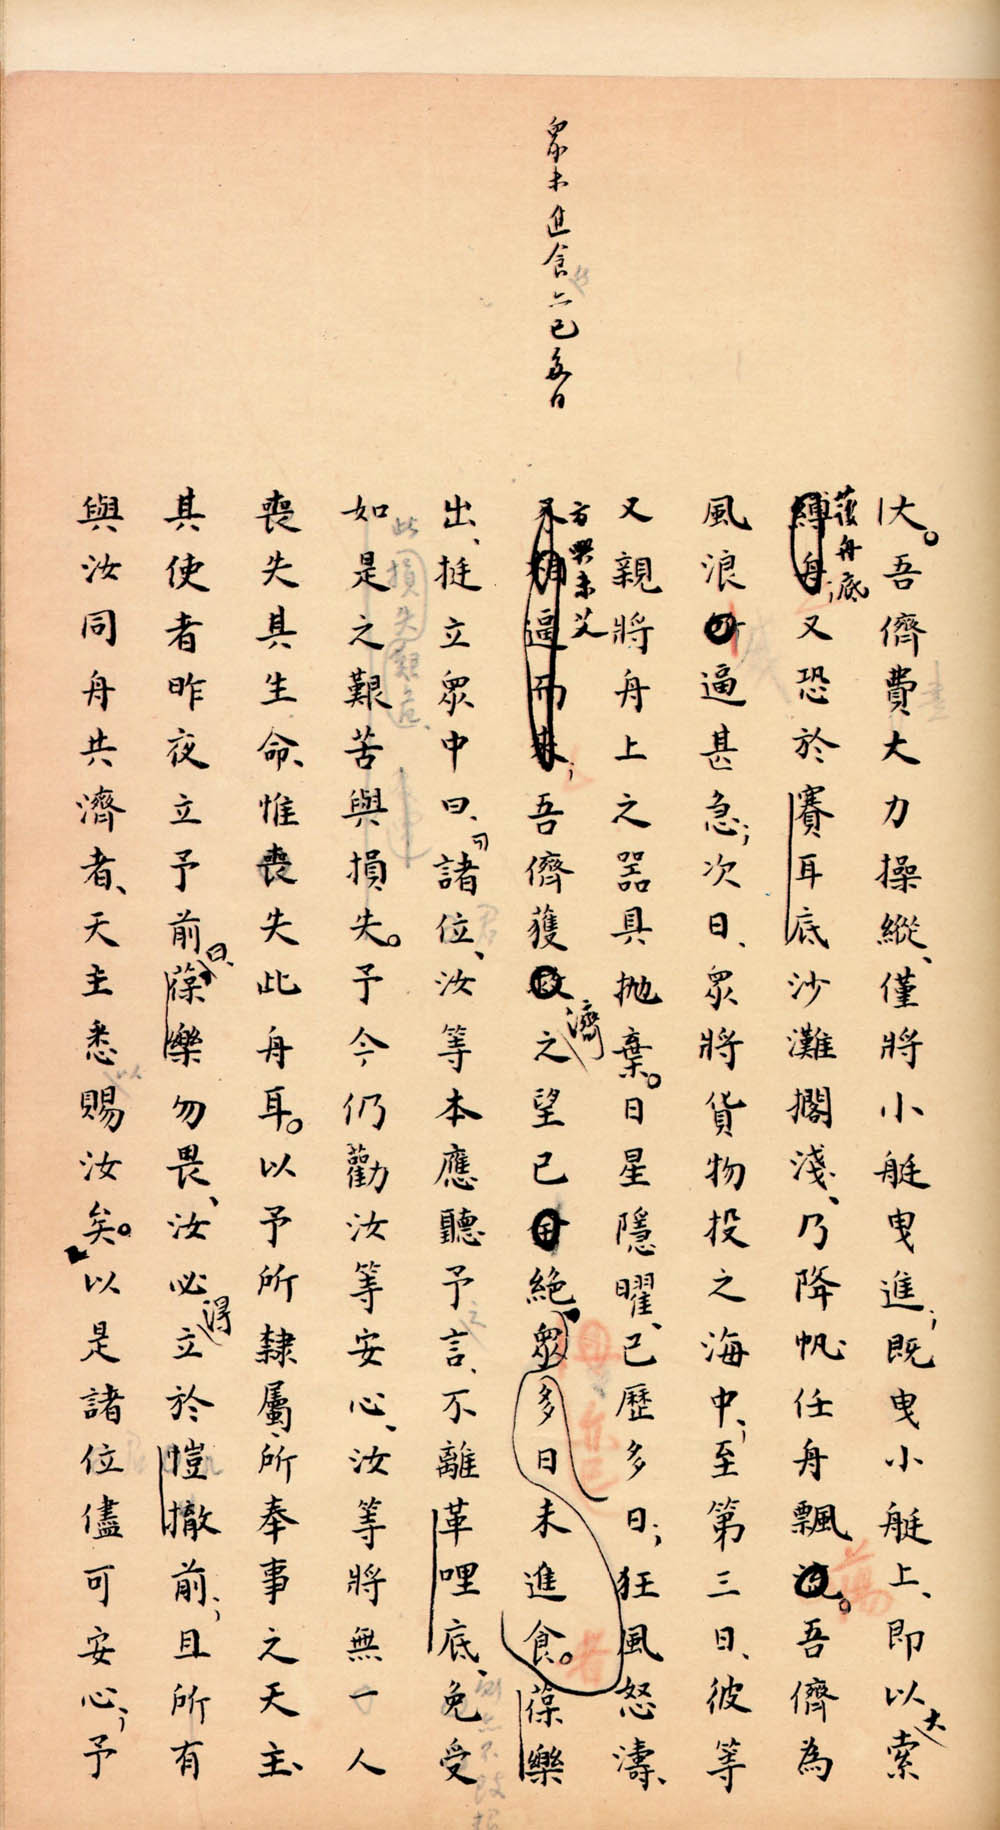 眾未進食亠已多日
大。吾儕費大力操縱、僅將小艇曳進；既曳小艇上、即以大索
縛舟；護舟底又恐於賽耳底沙灘擱淺、乃降帆任舟飄流。吾儕為
風浪所逼甚急；次日、眾將貨物投之海中；至第三日、彼等
又親將舟上之器具拋棄。日星隱曜、已歷多日；狂風怒濤、
方興未艾
來相逼而來；吾儕獲救濟之望已絕、眾多日未進食。葆樂
出、挺立眾中曰、諸位、汝等本應聽予言、不離革哩底、免受
如是之艱苦與損失。予今仍勸汝等安心、汝等將無一人
喪失其生命、惟喪失此舟耳。以予所隸屬、所奉事之天主、
其使者昨夜立予前曰、葆樂勿畏、汝必得立於愷撤前；且所有
與汝同舟共濟者、天主悉賜汝矣。以是諸位儘可安心；予
此損失艱危、
蕩
者